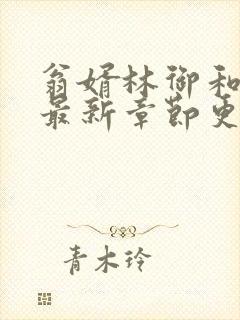 翁婿林御和
最新章节更
青木玲